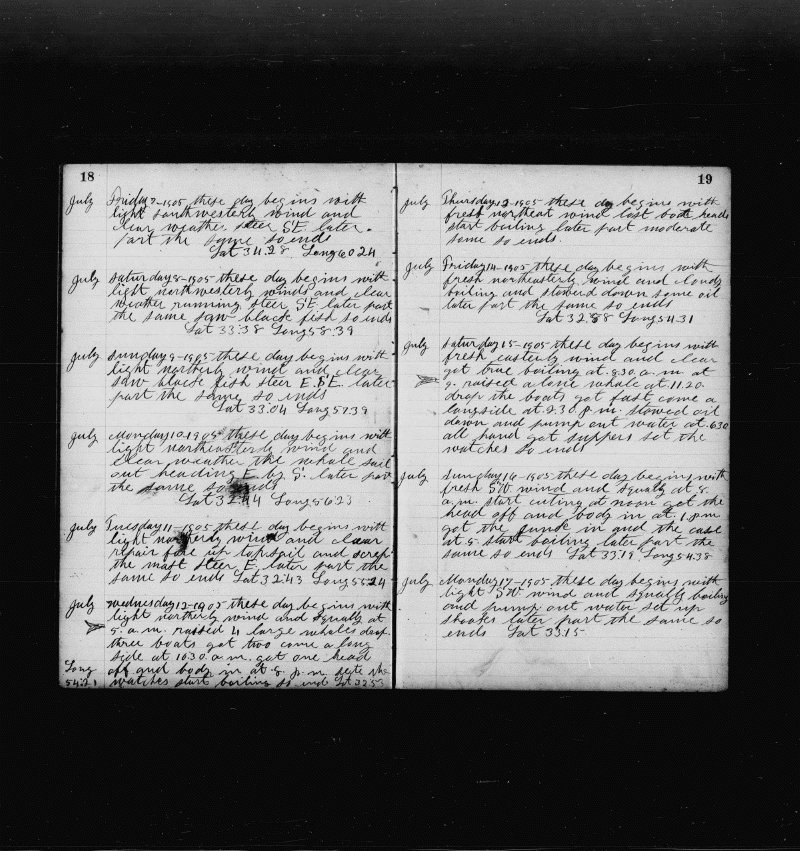 18
July Friday 7-1905 these day begins with
light southwesterly wind and
clear weather steer SE later
part the same so ends
Lat 34.28 Long 60 24
July Saturday 8-1905 these day begins with
light northwesterly winds and clear
weather running steer SE later part
the same saw black fish so ends
Lat 33.38 Long 58.39
July Sunday 9-1905 these day begins with
light northerly wind and clear
saw black fish steer E.SE. later
part the same so ends
Lat 33.04 Long 57.39
July Monday 10-1905 these day begins with
light northeasterly wind and
clear weather the whale sail
out heading E by S. later part
the same so ends
Lat 32.44 Long 56 23
July Tuesday 11-1905 these day begins with
light northerly wind and clear
repair fore up topsail and scrap
the mast steer E. later part the
same so ends Lat 32.43 Long 55.24
July Wednesday 12-1905 these day begins with
light northerly wind and squally at
5. a.m. raised 4 large whales drop
three boats got two come a long
side at 10.30. a.m. got one head
off and body in at 8 p.m. sets the
watches start boiling so end Lat 32 53
Long
54.21
19
July Thursday 13-1905 these day begins with
fresh northeast wind lost both heads
start boiling later part moderate
same so ends.
July Friday 14-1905 these day begins with
fresh northeasterly wind and cloudy
boiling and stowed down some oil
later part the same so ends
Lat 32.58 Long 54.31
July Saturday 15-1905 these day begins with
fresh easterly wind and clear
got true boiling at 8.30. a.m. at
9. raised a lone whale at 11.20.
drop the boats got fast come a
longside at 2.30. p.m. stowed oil
down and pump out water at 6.30
all hand got suppers set the
watches so ends
July Sunday 16-1905 these day begins with
fresh SW wind and squally at 5.
a.m. start cuting at noon get the
head off and body in at 1. p.m
got the junk in and the case
at 5. start boiling later part the
same so ends Lat 33.19 Long 54.38
July Monday 17-1905 these day begins with
light SW wind and squally boiling
and pump out water set up
shooks later part the same so
ends Lat 33.15